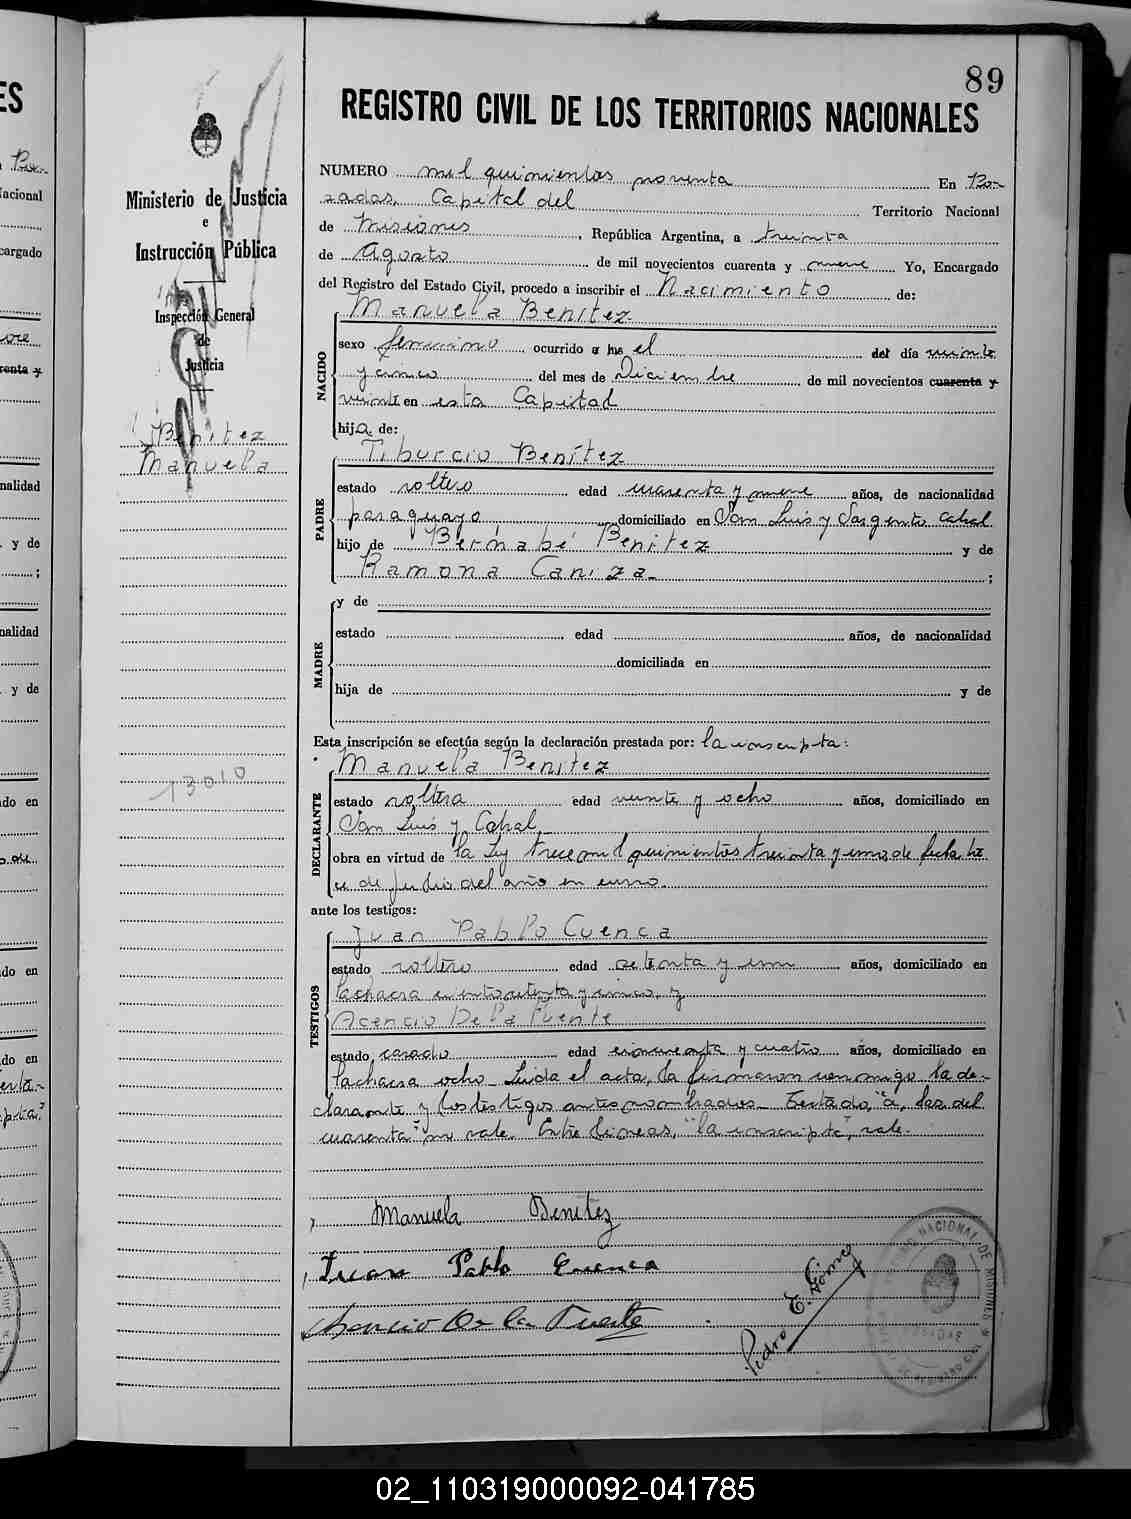 89
REGISTRO CIVIL DE LOS TERRITORIOS NACIONALES
Ministerio de Justicia
e
Instrucción Pública
Inspección General
de
Justicia
Benitez
Manuela
13010
NUMERO mil quinientos noventa En Po-
sadas, Capital del Territorio Nacional
de Misiones, República Argentina, a treinta
de Agosto de mil novecientos cuarenta y nueve Yo, Encargado
del Registro del Estado Civil, procedo a inscribir el Nacimiento de:
Manuela Benitez
NACIDO
sexo femenino ocurrido a las el del día veinte
y cinco del mes de Diciembre de mil novecientos cuarenta y
veinte en esta Capital
hija de:
Tiburcio Benítez
PADRE
estado soltero edad cuarenta y nueve años, de nacionalidad
paraguayo, domiciliado en San Luis y Sargento Cabral
hijo de Bernabé Benitez y de
Ramona Caniza- ;
MADRE
y de
estado edad años, de nacionalidad
domiciliada en
hija de y de
Esta inscripción se efectúa según la declaración prestada por: la inscripta:
Manuela Benitez
DECLARANTE
estado soltera edad veinte y ocho años, domiciliado en
San Luis y Cabral
obra en virtud de la Ley trece mil quinientos treinta y uno de fecha
de del año en curso.
ante los testigos:
Juan Pablo Cuenca
TESTIGOS
estado soltero edad setenta y un años, domiciliado en
la chacra ciento setenta y cinco, y
Acencio De la Fuente
estado casado edad cincuenta y cuatro años, domiciliado en
la chacra ocho- Leida el acta, la firmaron conmigo la de-
clarante y los testigos antes nombrados- Testado, "a, las, del
cuarenta" no vale. Entre líneas, "la inscripta", vale.
Manuela Benitez
Juan Pablo Cuenca
Acencio De la Fuente
Pedro E. Gómez
02_110319000092-041785